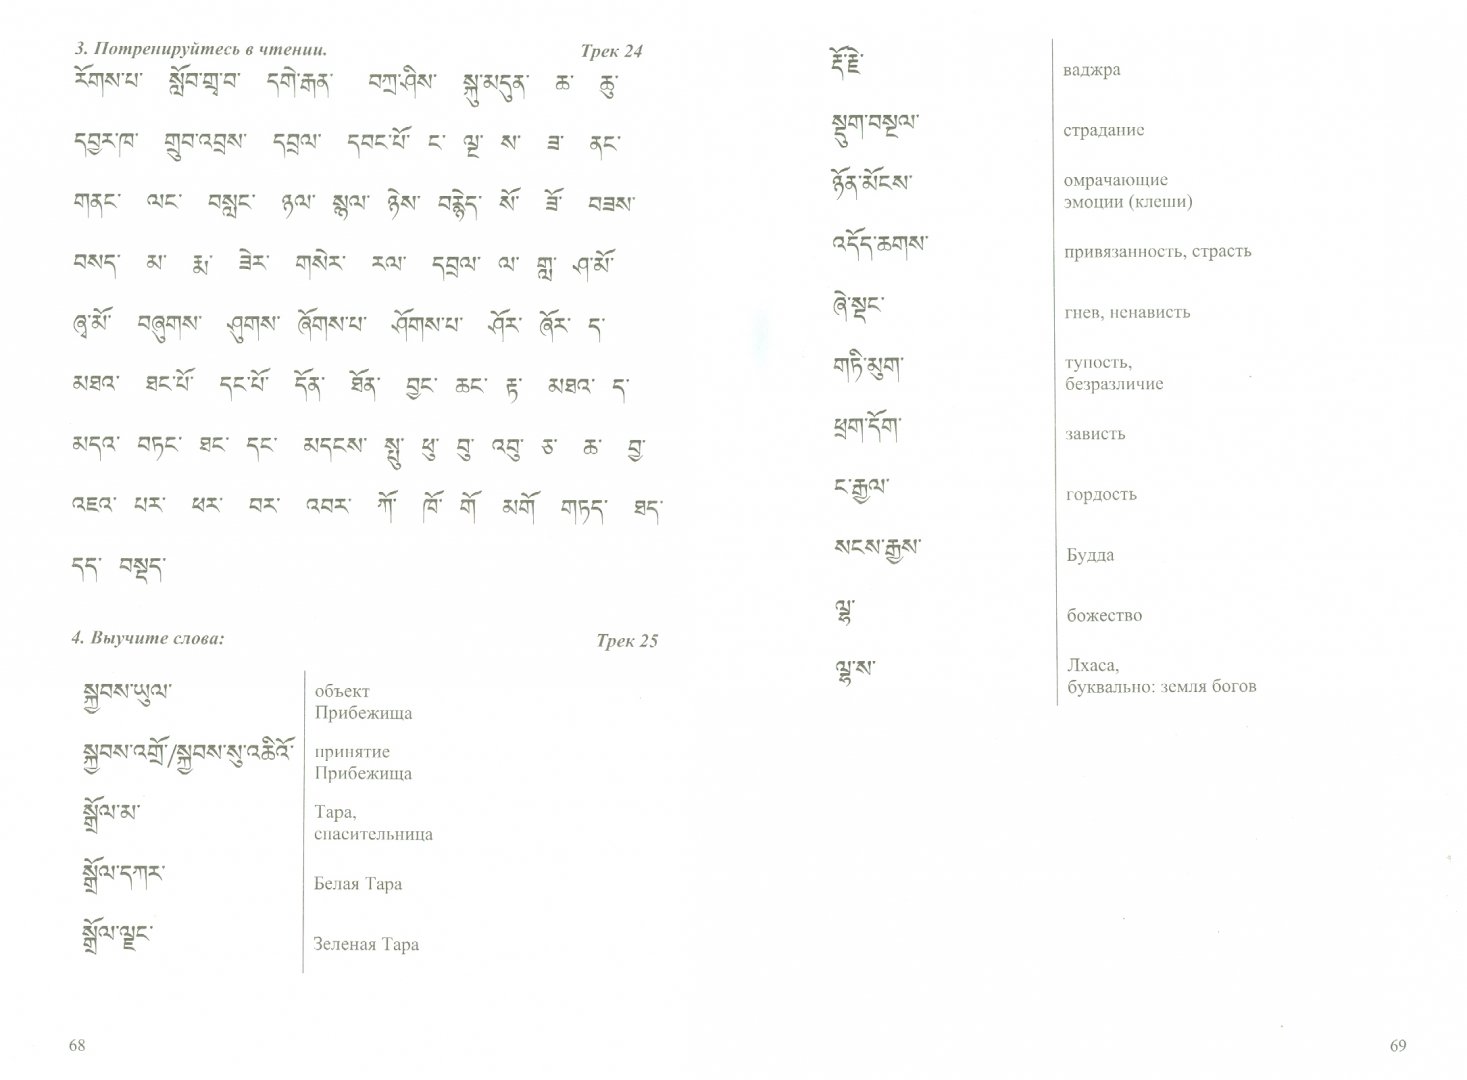 3. Потренируйтесь в чтении. Трек 24
རོགས་པ་ སློབ་གྲྭ་བ་ དགེ་རྒན་ བཀྲ་ཤིས་ སྐུ་མདུན་ ཆ་ ཆུ་
དབྱར་ཁ་ གྲུབ་འབྲས་ དབྲལ་ དབང་པོ་ ང་ ལྔ་ ས་ ཟ་ ནང་
གནང་ ལང་ བསླང་ ཉལ་ སྙལ་ ཉེས་ བརྙེད་ སོ་ ཟོ་ བཟས་
བསད་ མ་ རྨ་ ཟེར་ གསེར་ རལ་ དབྲལ་ ལ་ གླ་ ཤ་མོ་
ཞྭ་མོ་ བཞུགས་ ཤུགས་ ཞོགས་པ་ ཤོགས་པ་ ཤོར་ ཞོར་ ད་
མཐའ་ ཐང་པོ་ དང་པོ་ དོན་ ཐོན་ བྱང་ ཆང་ རྟ་ མཐའ་ ད་
མདའ་ བཏང་ ཐང་ དང་ མདངས་ སྤུ་ ཕུ་ བུ་ འབུ་ ཅ་ ཆ་ བྱ་
འཇའ་ པར་ ཕར་ བར་ འབར་ ཀོ་ ཁོ་ གོ་ མགོ་ གཏད་ ཐད་
དད་ བསྡད་
4. Выучите слова: Трек 25
སྐྱབས་ཡུལ་ объект
Прибежища
སྐྱབས་འགྲོ་/སྐྱབས་སུ་འཆིའོ་ принятие
Прибежища
སྒྲོལ་མ་ Тара,
спасительница
སྒྲོལ་དཀར་ Белая Тара
སྒྲོལ་ལྗང་ Зеленая Тара
68
རྡོ་རྗེ་ ваджра
སྡུག་བསྔལ་ страдание
ཉོན་མོངས་ омрачающие
эмоции (клеши)
འདོད་ཆགས་ привязанность, страсть
ཞེ་སྡང་ гнев, ненависть
གཏི་མུག་ тупость,
безразличие
ཕྲག་དོག་ зависть
ང་རྒྱལ་ гордость
སངས་རྒྱས་ Будда
ལྷ་ божество
ལྷ་ས་ Лхаса,
буквально: земля богов
69